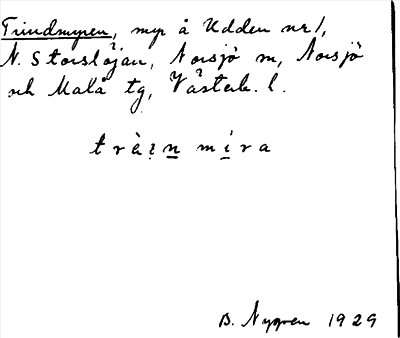 Trindmyren, myr å Udden nr 1,
N. Storslöjan, Norsjö sn, Norsjö
och Malå tg, Västerb. l.
trèi̥n̲ mi̲ra
B. Nygren 1929